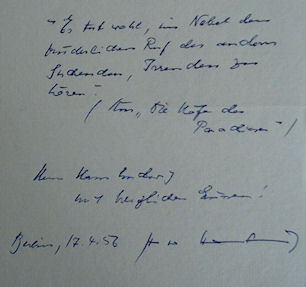 "Es tut wohl, im Nebel den
brüderlichen Ruf des andern
Suchenden, Irrenden zu
hören"
(Aus „Die Höfe des
Paradieses")
Herrn Hans Ludwig
mit herzlichen Grüssen!
Berlin, 17.4.56